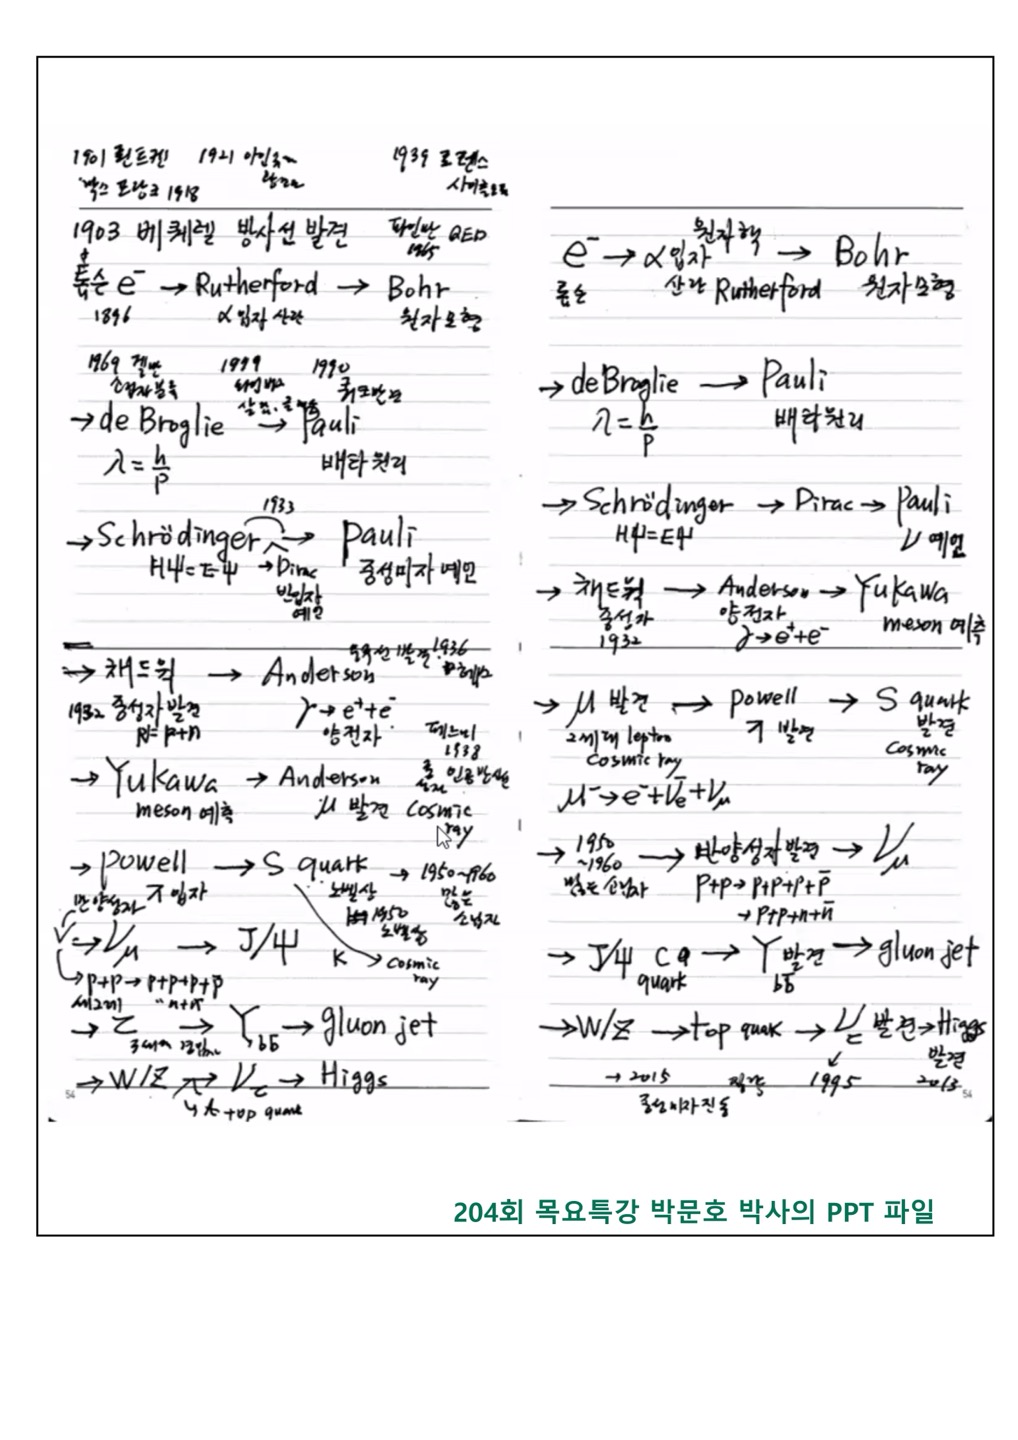 1901 뢴트겐 1921 아인슈타인 1939 로렌스
막스 프랑크 1918 광전 사이클로트론
1903 베퀘렐 방사선 발견 파인만 QED
1965
톰슨 e⁻ → Rutherford → Bohr
1896 α입자 산란 원자모형
1969 겔만 1999 1990
소립자분류 쿼크
→ de Broglie → Pauli
λ = h/p 배타원리
1933
→ Schrödinger → Pauli
Hψ = Eψ → Dirac 중성미자 예언
반입자
예언
→ 채드윅 → Anderson 우주선 발견 1936 헤스
1932 중성자 발견 γ → e⁺ + e⁻
양전자 페르미
1938
→ Yukawa → Anderson 인공방사선
meson 예측 μ 발견 cosmic
ray
→ powell → S quark → 1950~1960
반양성자 π 입자 노벨상 많은
1950 소립자
노벨상
→ ν_μ → J/ψ K → cosmic
ray
→ p+p → p+p+p+p̄
세그레 "n+n̄
→ τ → Υ bb̄ → gluon jet
3세대 경입자
→ W/Z → ν_τ → Higgs
↳ t top quark
54
원자핵
e⁻ → α입자 → Bohr
톰슨 산란 Rutherford 원자모형
→ de Broglie → Pauli
λ = h/p 배타원리
→ Schrödinger → Dirac → Pauli
Hψ = Eψ ν 예언
→ 채드윅 → Anderson → Yukawa
중성자 양전자 meson 예측
1932 γ → e⁺ + e⁻
→ μ 발견 → powell → S quark
2세대 lepton π 발견 발견
cosmic ray cosmic
ray
μ⁻ → e⁻ + ν̄_e + ν_μ
→ 1950 → 반양성자 발견 → ν_μ
~1960
많은 소립자 p+p → p+p+p+p̄
→ p+p+n+n̄
→ J/ψ c q → Υ 발견 → gluon jet
quark bb̄
→ W/Z → top quak → ν_τ 발견 → Higgs
발견
→ 2015 1995 2013
중성미자 진동
54
204회 목요특강 박문호 박사의 PPT 파일